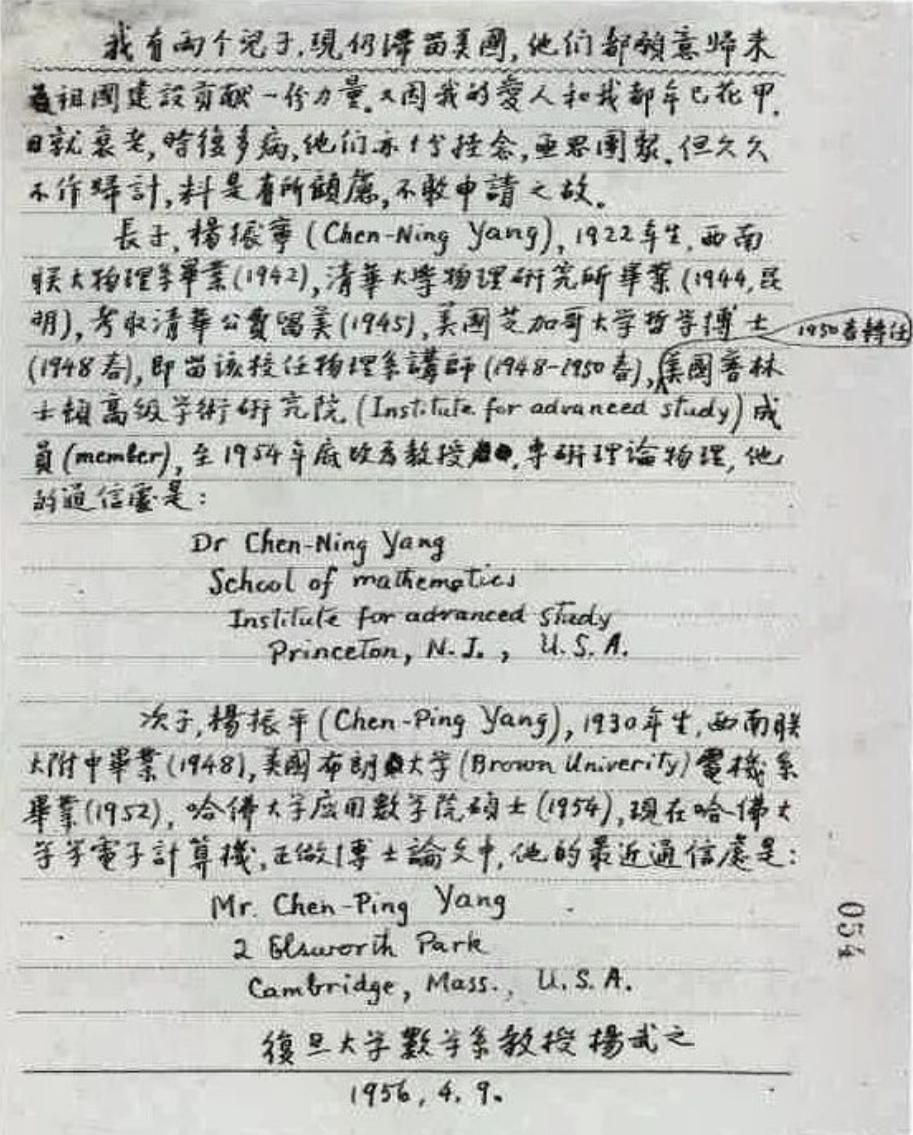 我有兩个兒子,現仍滞留美國,他们都願意歸来
為祖國建設貢献一份力量。又因我的愛人和我都年已花甲,
日就衰老,時復多病,他们亦十分挂念,亟思團聚。但久久
不作歸計,料是有所顧慮,不敢申請之故。
長子,楊振寧(Chen-Ning Yang),1922年生,西南
联大物理系畢業(1942),清華大學物理研究所畢業(1944,昆
明),考取清華公費留美(1945),美國芝加哥大学哲学博士
1950春轉任
(1948春),即留该校任物理系講師(1948-1950春),美國普林
士頓高级学術研究院(Institute for advanced study)成
員(member),至1954年底改為教授,専研理論物理,他
的通信處是:
Dr Chen-Ning Yang
School of mathematics
Institute for advanced study
Princeton, N.J., U.S.A.
次子,楊振平(Chen-Ping Yang),1930年生,西南联
大附中畢業(1948),美國布朗大学(Brown Univerity)電機系
畢業(1952),哈佛大学应用數学院碩士(1954),現在哈佛大
学学電子計算機,正做博士論文中,他的最近通信處是:
Mr. Chen-Ping Yang
2 Elsworth Park
Cambridge, Mass., U.S.A.
復旦大学數学系教授楊武之
1956,4.9。
054